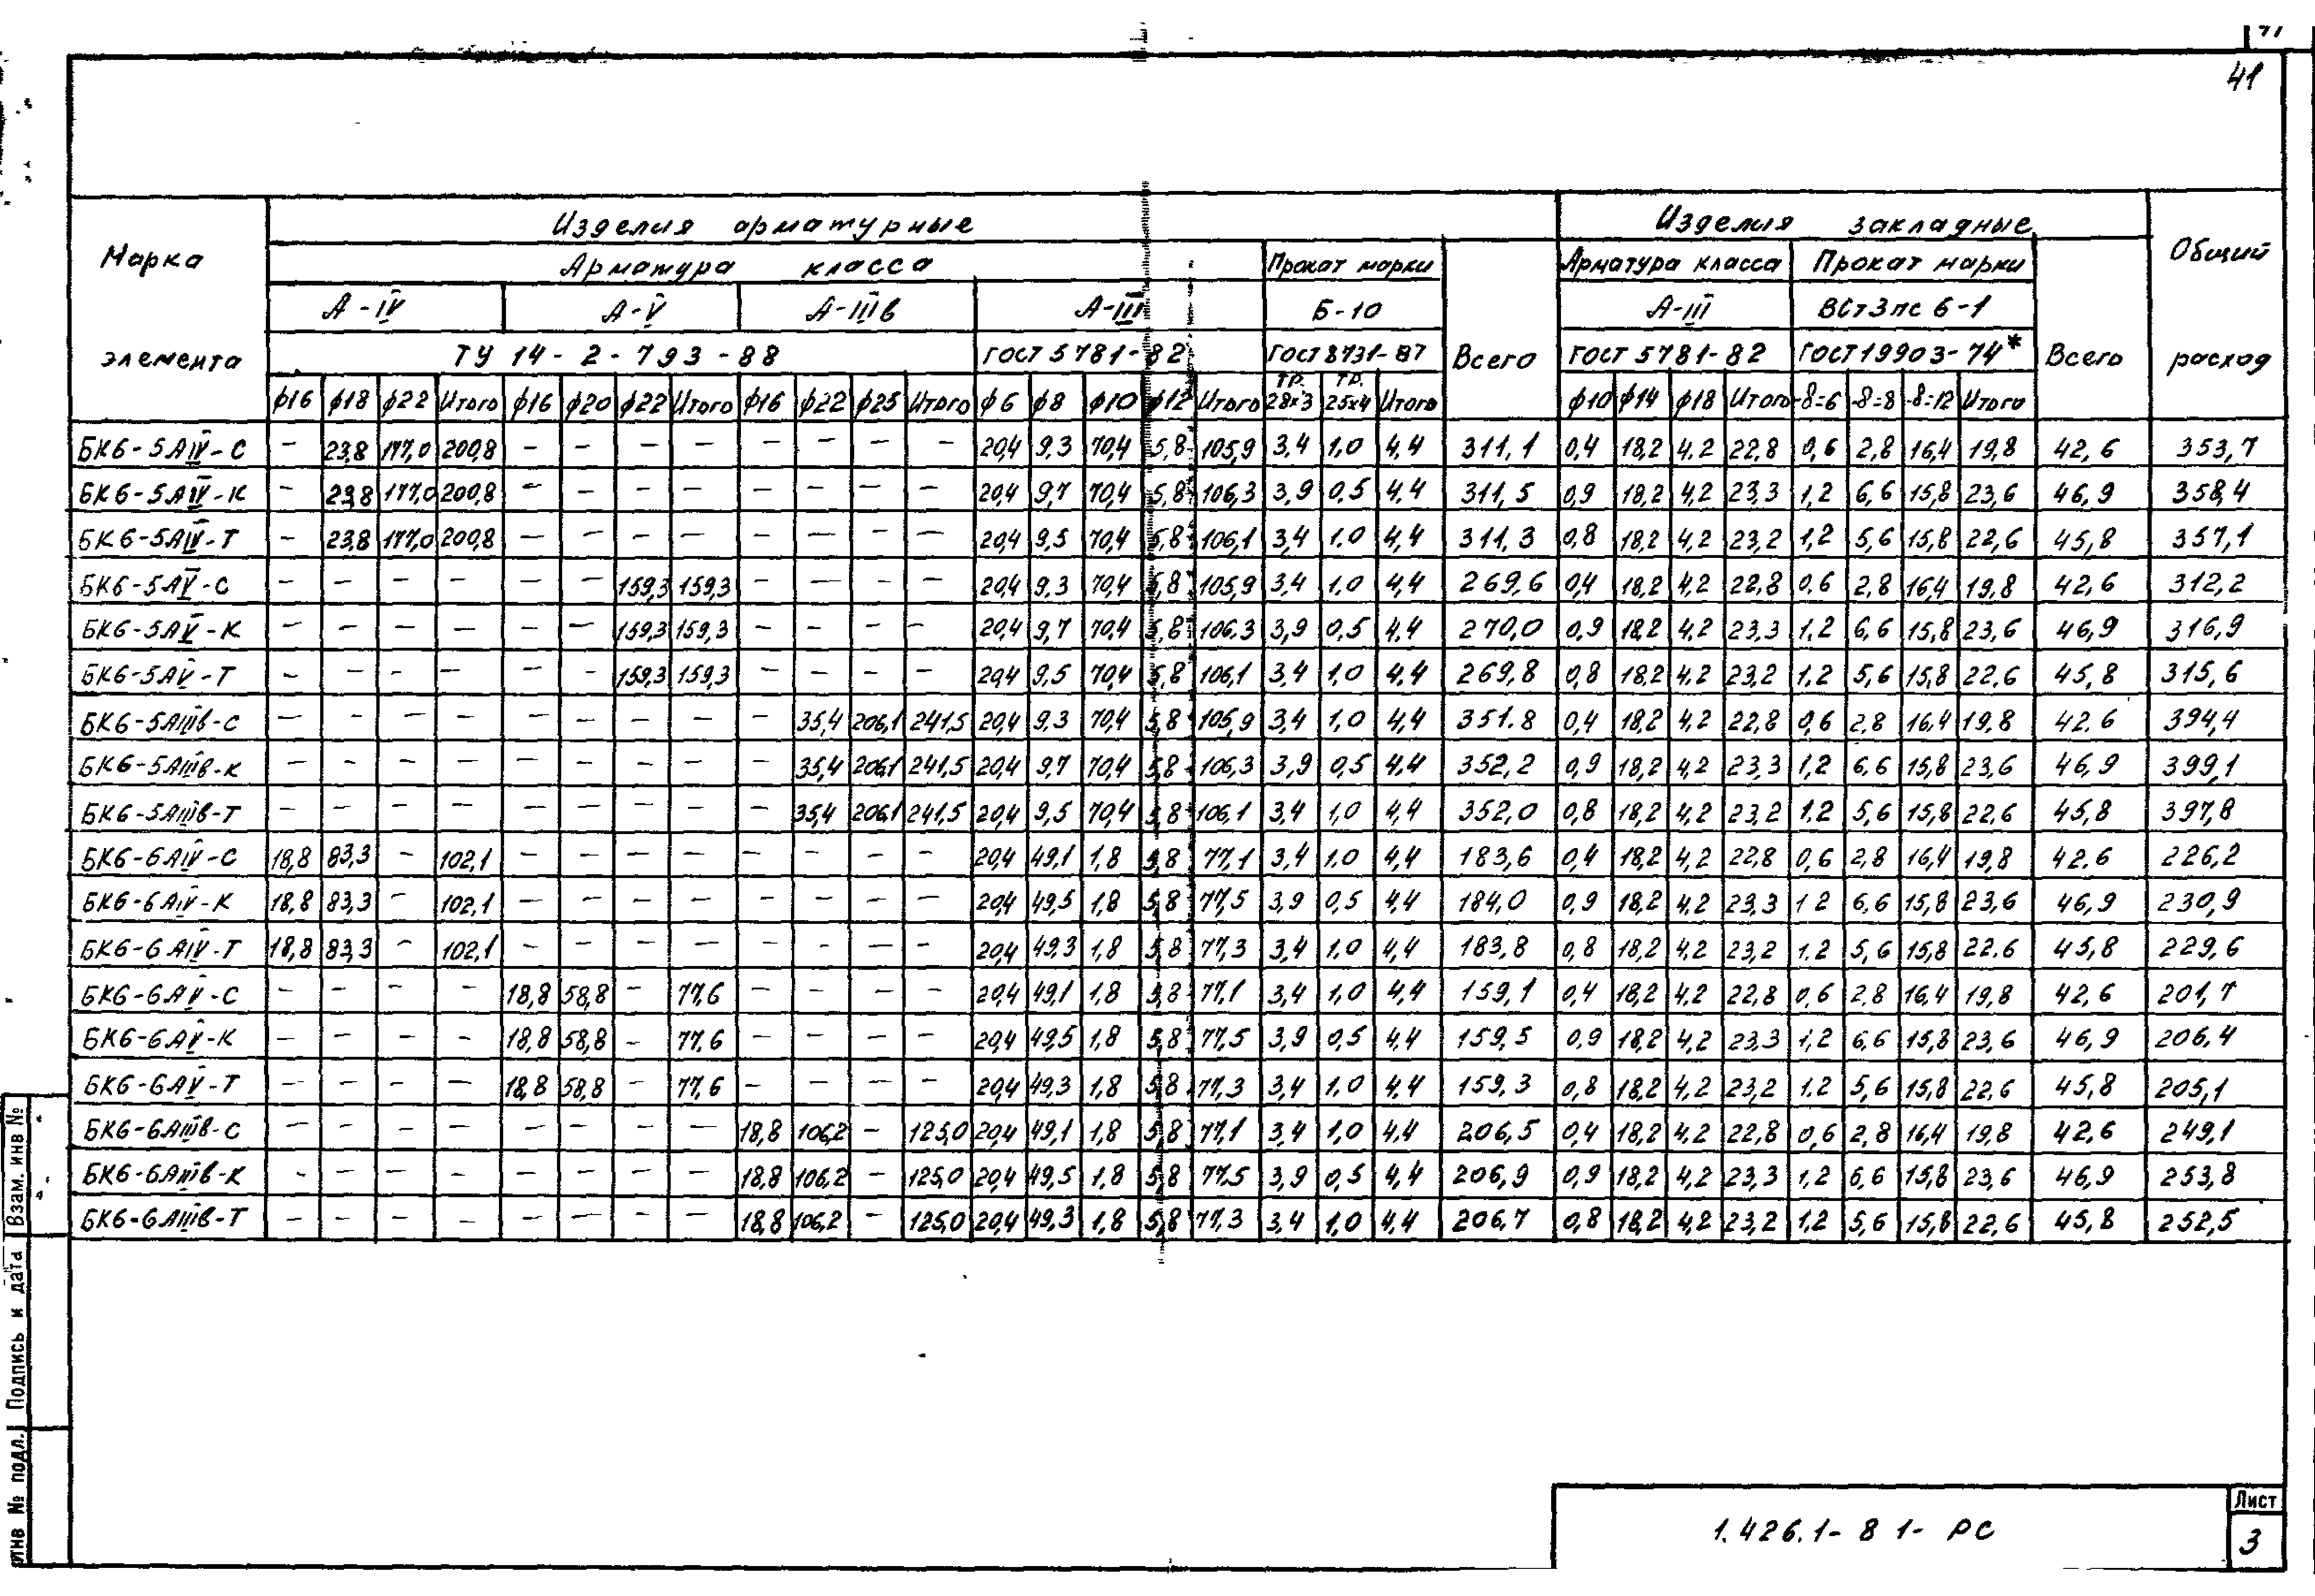 41
Марка элемента
Изделия арматурные
Изделия закладные
Общий расход
Арматура класса
Прокат марки
Всего
Арматура класса
Прокат марки
Всего
А-IV А-V А-IIIв А-III Б-10 А-III ВСт3пс 6-1
ТУ 14-2-793-88 ГОСТ 5781-82 ГОСТ 8731-87 ГОСТ 5781-82 ГОСТ 19903-74*
ф16 ф18 ф22 Итого ф16 ф20 ф22 Итого ф16 ф22 ф25 Итого ф6 ф8 ф10 ф12 Итого тр. 28х3 тр. 25х4 Итого ф10 ф14 ф18 Итого -8=6 -8=8 -8=12 Итого
БК6-5АIV-С - 23,8 177,0 200,8 - - - - - - - - 20,4 9,3 70,4 5,8 105,9 3,4 1,0 4,4 311,1 0,4 18,2 4,2 22,8 0,6 2,8 16,4 19,8 42,6 353,7
БК6-5АIV-К - 23,8 177,0 200,8 - - - - - - - - 20,4 9,7 70,4 5,8 106,3 3,9 0,5 4,4 311,5 0,9 18,2 4,2 23,3 1,2 6,6 15,8 23,6 46,9 358,4
БК6-5АIV-Т - 23,8 177,0 200,8 - - - - - - - - 20,4 9,5 70,4 5,8 106,1 3,4 1,0 4,4 311,3 0,8 18,2 4,2 23,2 1,2 5,6 15,8 22,6 45,8 357,1
БК6-5АV-С - - - - - - 159,3 159,3 - - - - 20,4 9,3 70,4 5,8 105,9 3,4 1,0 4,4 269,6 0,4 18,2 4,2 22,8 0,6 2,8 16,4 19,8 42,6 312,2
БК6-5АV-К - - - - - - 159,3 159,3 - - - - 20,4 9,7 70,4 5,8 106,3 3,9 0,5 4,4 270,0 0,9 18,2 4,2 23,3 1,2 6,6 15,8 23,6 46,9 316,9
БК6-5АV-Т - - - - - - 159,3 159,3 - - - - 20,4 9,5 70,4 5,8 106,1 3,4 1,0 4,4 269,8 0,8 18,2 4,2 23,2 1,2 5,6 15,8 22,6 45,8 315,6
БК6-5АIIIв-С - - - - - - - - - 35,4 206,1 241,5 20,4 9,3 70,4 5,8 105,9 3,4 1,0 4,4 351.8 0,4 18,2 4,2 22,8 0,6 2,8 16,4 19,8 42,6 394,4
БК6-5АIIIв-К - - - - - - - - - 35,4 206,1 241,5 20,4 9,7 70,4 5,8 106,3 3,9 0,5 4,4 352,2 0,9 18,2 4,2 23,3 1,2 6,6 15,8 23,6 46,9 399,1
БК6-5АIIIв-Т - - - - - - - - - 35,4 206,1 241,5 20,4 9,5 70,4 5,8 106,1 3,4 1,0 4,4 352,0 0,8 18,2 4,2 23,2 1,2 5,6 15,8 22,6 45,8 397,8
БК6-6АIV-С 18,8 83,3 - 102,1 - - - - - - - - 20,4 49,1 1,8 5,8 77,1 3,4 1,0 4,4 183,6 0,4 18,2 4,2 22,8 0,6 2,8 16,4 19,8 42,6 226,2
БК6-6АIV-К 18,8 83,3 - 102,1 - - - - - - - - 20,4 49,5 1,8 5,8 77,5 3,9 0,5 4,4 184,0 0,9 18,2 4,2 23,3 1,2 6,6 15,8 23,6 46,9 230,9
БК6-6АIV-Т 18,8 83,3 - 102,1 - - - - - - - - 20,4 49,3 1,8 5,8 77,3 3,4 1,0 4,4 183,8 0,8 18,2 4,2 23,2 1,2 5,6 15,8 22,6 45,8 229,6
БК6-6АV-С - - - - 18,8 58,8 - 77,6 - - - - 20,4 49,1 1,8 5,8 77,1 3,4 1,0 4,4 159,1 0,4 18,2 4,2 22,8 0,6 2,8 16,4 19,8 42,6 201,7
БК6-6АV-К - - - - 18,8 58,8 - 77,6 - - - - 20,4 49,5 1,8 5,8 77,5 3,9 0,5 4,4 159,5 0,9 18,2 4,2 23,3 1,2 6,6 15,8 23,6 46,9 206,4
БК6-6АV-Т - - - - 18,8 58,8 - 77,6 - - - - 20,4 49,3 1,8 5,8 77,3 3,4 1,0 4,4 159,3 0,8 18,2 4,2 23,2 1,2 5,6 15,8 22,6 45,8 205,1
БК6-6АIIIв-С - - - - - - - - 18,8 106,2 - 125,0 20,4 49,1 1,8 5,8 77,1 3,4 1,0 4,4 206,5 0,4 18,2 4,2 22,8 0,6 2,8 16,4 19,8 42,6 249,1
БК6-6АIIIв-К - - - - - - - - 18,8 106,2 - 125,0 20,4 49,5 1,8 5,8 77,5 3,9 0,5 4,4 206,9 0,9 18,2 4,2 23,3 1,2 6,6 15,8 23,6 46,9 253,8
БК6-6АIIIв-Т - - - - - - - - 18,8 106,2 - 125,0 20,4 49,3 1,8 5,8 77,3 3,4 1,0 4,4 206,7 0,8 18,2 4,2 23,2 1,2 5,6 15,8 22,6 45,8 252,5
Взам. инв №
Подпись и дата
Инв № подл.
1.426.1-8 1-РС
Лист
3